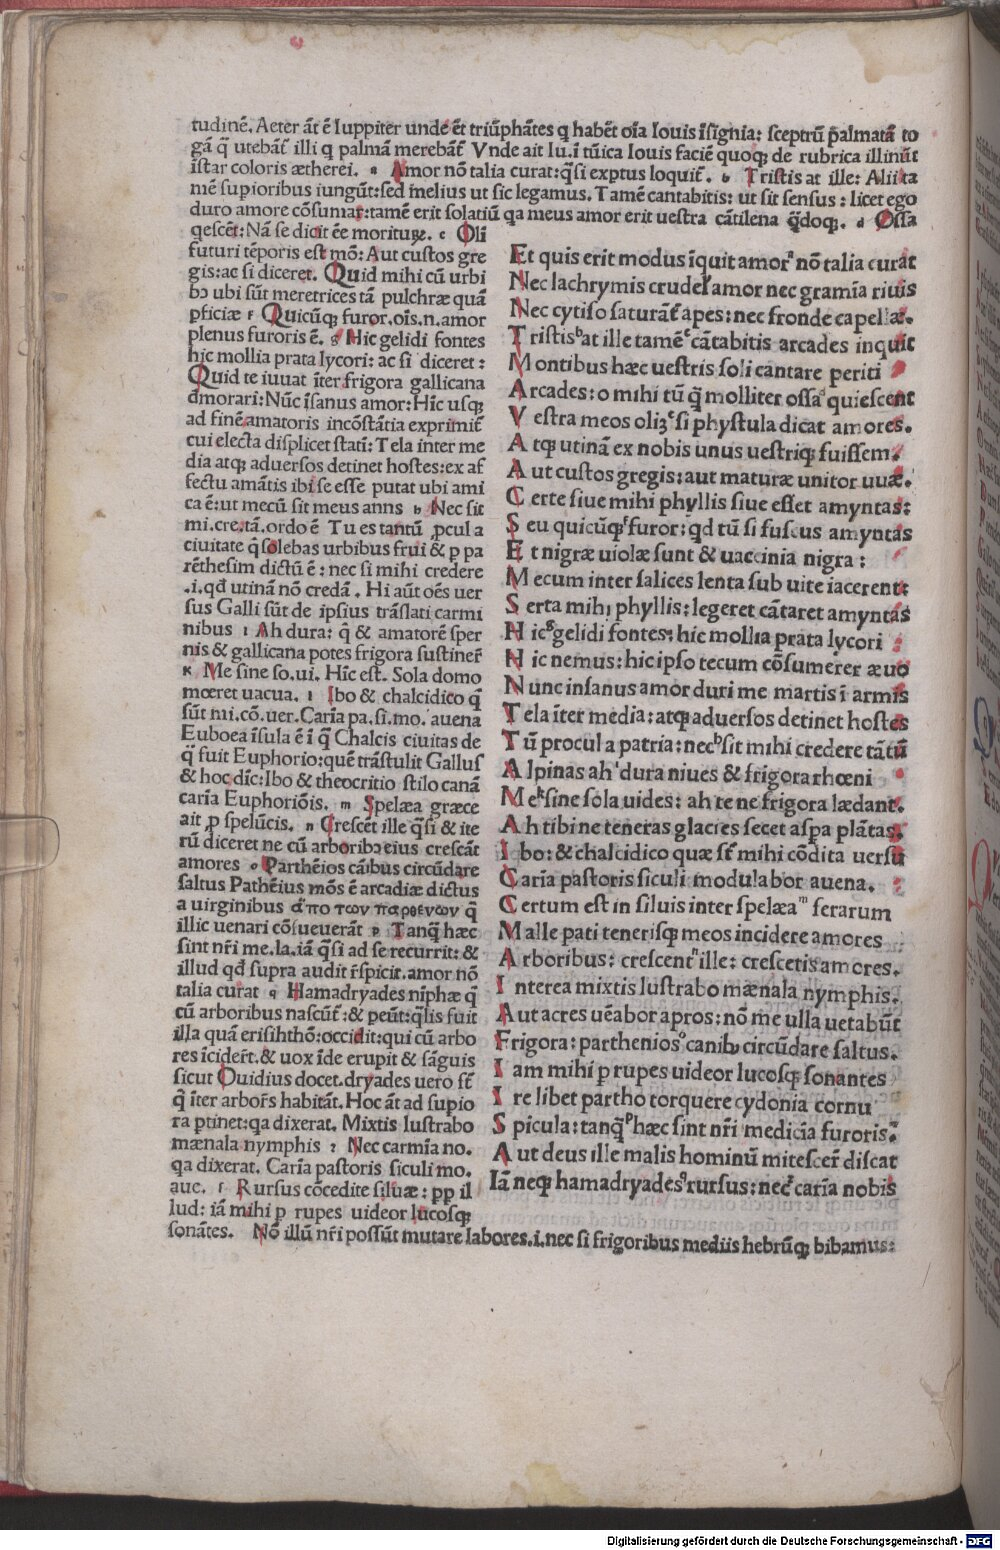 tudinē. Aeter āt ē Iuppiter unde ēt triūphātes q habēt oīa Iouis īsignia: sceptrū palmatā to
gā q̄ utebāt illi q palmā merebāt Vnde ait Iu.ī tūica Iouis faciē quoq; de rubrica illinūt
īstar coloris ætherei. a Amor nō talia curat:q̄si exptus loquit̄. b Tristis at ille: Alii ta
mē supioribus iungūt:sed melius ut sic legamus. Tamē cantabitis: ut sit sensus: licet ego
duro amore cōsumar:tamē erit solatiū qa meus amor erit uestra cātilena q̄doq;. d Ossa
qescēt: Nā se dicit ēe moriturꝝ. e Olī
futuri tēporis est mō: Aut custos gre
gis: ac si diceret. Quid mihi cū urbi
bꝯ ubi sūt meretrices tā pulchræ quā
pficiæ f Quicūq; furor.oīs.n.amor
plenus furoris ē. g Hic gelidi fontes
hic mollia prata lycori: ac si diceret:
Quid te iuuat īter frigora gallicana
dmorari: Nūc īsanus amor: Hīc usq;
ad finē amatoris incōstātia exprimit̄
cui electa displicet statī: Tela inter me
dia atq; aduersos detinet hostes:ex af
fectu amātis ibi se esse putat ubi ami
ca ē: ut mecū sit meus anns h Nec sit
mi.cre.tā.ordo ē Tu es tantū pcul a
ciuitate q̄ solebas urbibus frui & p pa
rēthesim dictū ē: nec si mihi credere
.i.qd utinā nō credā. Hi aūt oēs uer
sus Galli sūt de ipsius trāslati carmi
nibus i Ah dura: q̄ & amatorē sper
nis & gallicana potes frigora sustiner̄
k Me sine so.ui. Hīc est. Sola domo
mœret uacua. l Ibo & chalcidico q̄
sūt mi.cō.uer. Carīa pa.si.mo. auena
Euboea īsula ē ī q̄ Chalcis ciuitas de
q̄ fuit Euphorio:quē trāstulit Gallus
& hoc dīc: Ibo & theocritio stilo canā
carīa Euphoriōis. m Spelæa græce
ait p spelūcis. n Crescēt ille q̄si & ite
rū diceret ne cū arboribꝯ eius crescāt
amores o Parthēios cāibus circūdare
saltus Pathēius mōs ē arcadiæ dictus
a uirginibus ἀπο των παρθενων q̄
illic uenari cōsueuerāt p Tanq̄ hæc
sint nr̄i me.la.iā q̄si ad se recurrit: &
illud qd supra audit r̄spicit.amor nō
talia curat q Hamadryades nīphæ q̄
cū arboribus nascūt̄:& peūt:q̄lis fuit
illa quā erisihthō:occidit:qui cū arbo
res īcider̄t.& uox īde erupit & sāguis
sicut Ouidius docet.dryades uero st̄
q̄ īter arbor̄s habitāt. Hoc āt ad supio
ra ptinet:qa dixerat. Mixtis lustrabo
mænala nymphis r Nec carmīa no.
qa dixerat. Carīa pastoris siculi mo.
aue. s Rursus cōcedite siluæ: pp il
lud: iā mihi p rupes uideor lucosq;
sonātes. Nō illū nr̄i possūt mutare labores.i.nec si frigoribus mediis hebrūq; bibamus:
Et quis erit modus īquit amor a nō talia curat
Nec lachrymis crudel' amor nec gramīa riuis
Nec cytiso saturāt̄ apes: nec fronde capellæ.
Tristis b at ille tamē c cātabitis arcades inquit
Montibus hæc uestris soli cantare periti
Arcades: o mihi tū q̄ molliter ossa d quiescent
Vestra meos oliꝫ e si phystula dicat amores.
Atq; utinā ex nobis unus uestriq; fuissem.
Aut custos gregis: aut maturæ uinitor uuæ.
Certe siue mihi phyllis siue esset amyntas:
Seu quicūq; f furor: qd tū si fuscus amyntas
Et nigræ uiolæ sunt & uaccinia nigra:
Mecum inter salices lenta sub uite iacerent:
Serta mihi phyllis: legeret cātaret amyntas
Hic g gelidi fontes: hic mollia prata lycori
Hic nemus: hic ipso tecum cōsumerer æuo
Nunc insanus amor duri me martis ī armis
Tela īter media: atq; aduersos detinet hostes
Tū procul a patria: nec h sit mihi credere tātū
Alpinas ah i dura niues & frigora rhœni
Me k sine sola uides: ah te ne frigora lædant.
Ah tibi ne teneras glacies secet aspa plātas.
Ibo: & chalcidico quæ st̄ mihi cōdita uersu
Carīa pastoris siculi modulabor auena.
Certum est in siluis inter spelæa m ferarum
Malle pati tenerisq; meos incidere amores
Arboribus: crescent n ille: crescetis amores.
Interea mixtis lustrabo mænala nymphis.
Aut acres uēabor apros: nō me ulla uetabūt
Frigora: parthenios o canibꝯ circūdare saltus.
Iam mihi p rupes uideor lucosq; sonantes
Ire libet partho torquere cydonia cornu
Spicula: tanq̄ p hæc sint nr̄i medicīa furoris.
Aut deus ille malis hominū mitescer̄ discat
Iā neq; hamadryades q rursus: nec r carīa nobis
Digitalisierung gefördert durch die Deutsche Forschungsgemeinschaft - DFG